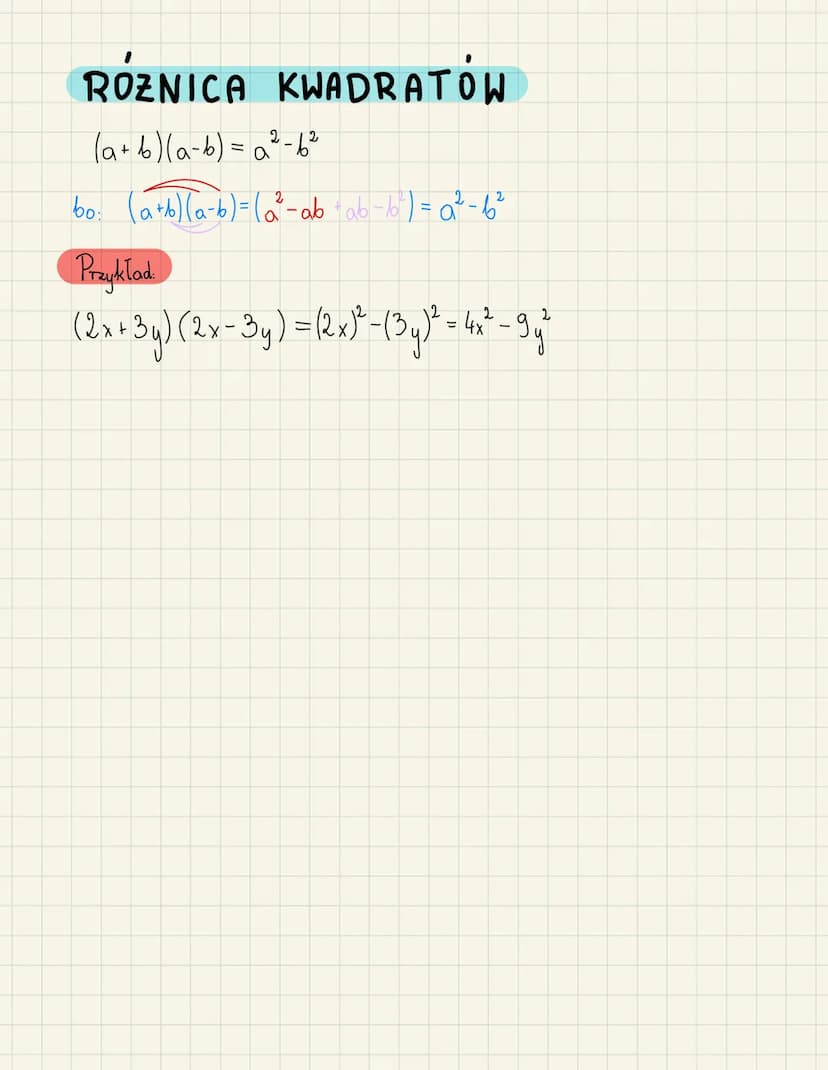 RÓŻNICA KWADRATÓW
(a+b)(a-b) = a²-b²
bo: (a+b)(a-b)=(a²-ab+ab-b²) = a²-b²
Przykład:
(2x+3y)(2x-3y) = (2x)²-(3y)² = 4x²-9y²